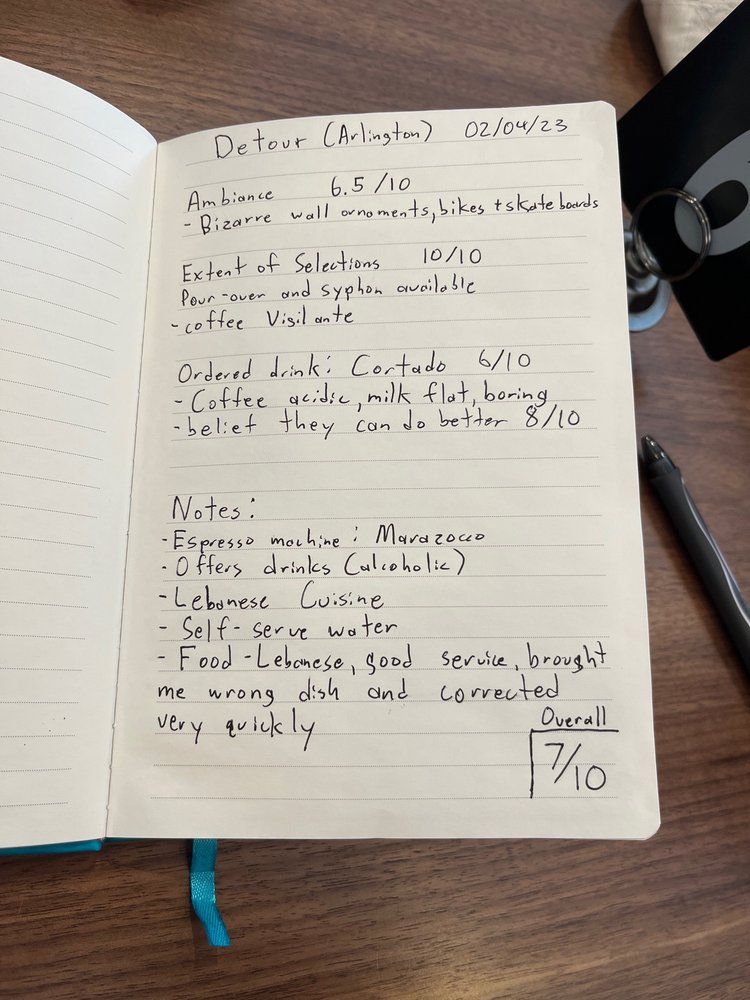 Detour (Arlington) 02/04/23
Ambiance 6.5/10
- Bizarre wall ornoments, bikes + skateboards
Extent of Selections 10/10
Pour-over and syphon available
- coffee Vigilante
Ordered drink: Cortado 6/10
- Coffee acidic, milk flat, boring
- belief they can do better 8/10
Notes:
- Espresso machine: Marazocco
- Offers drinks (alcoholic)
- Lebanese Cuisine
- Self-serve water
- Food - Lebanese, good service, brought
me wrong dish and corrected
very quickly
Overall
7/10